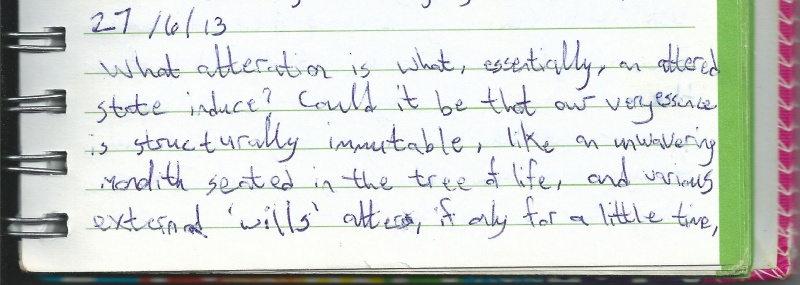 27/6/13
What alteration is what, essentially, an altered
state induce? Could it be that our very essence
is structurally immutable, like an unwavering
monolith seated in the tree of life, and various
external 'wills' alter, if only for a little time,